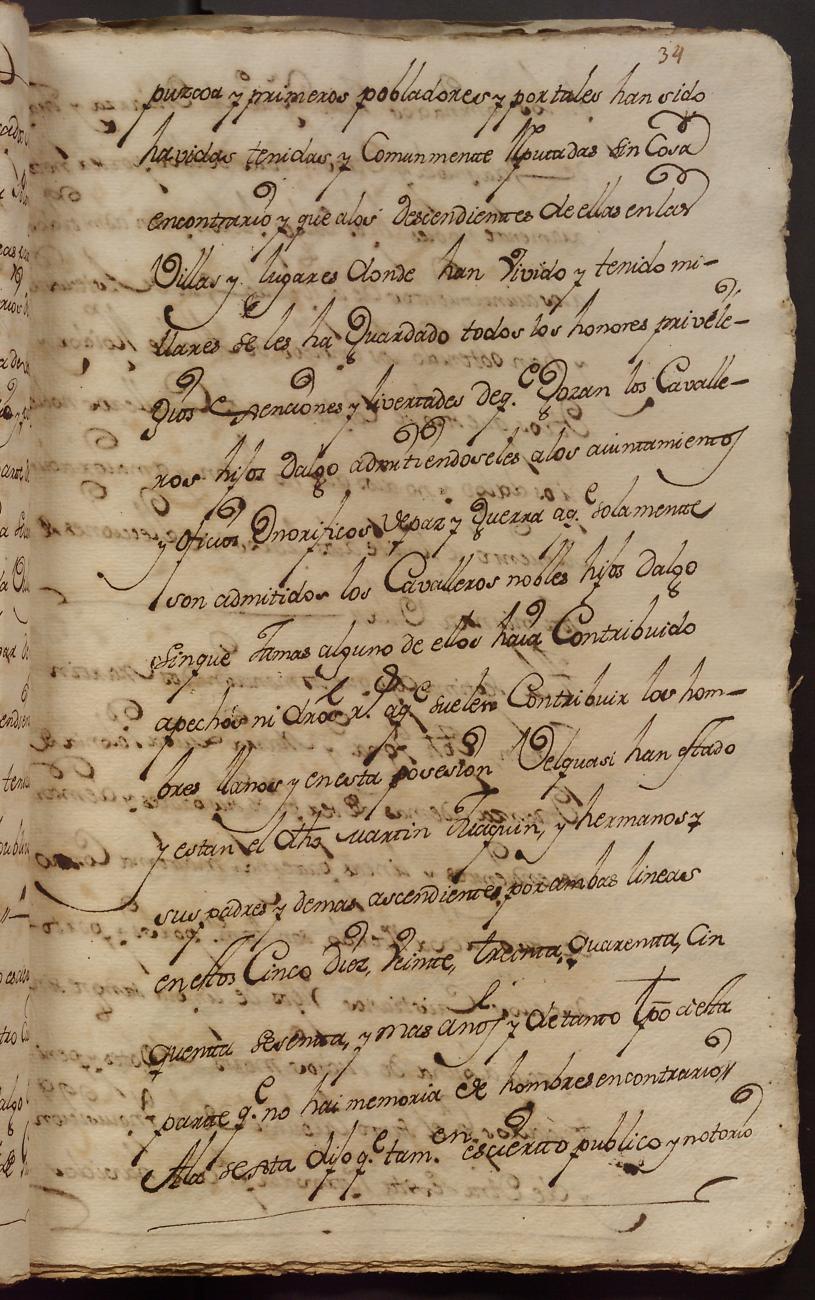 34
puzcoa y primeros pobladores y por tales han sido
havidas tenidas, y Comunmente Rputadas sin Cosa
encontrario y que alos Descendientes de ellas en las
Villas y lugares donde han Vivido y tenido mi-
llares se les ha Guardado todos los honores privile-
gios esenciones y livertades deq.e Gozan los Cavalle-
ros hijos Dalgo admitiendoseles alos aiuntamientos
y oficios Onorificos de paz y Guerra aq.e solamente
son admitidos los Cavalleros nobles hijos Dalgo
sinque Jamas alguno de ellos haia Contribuido
apechos ni dros r.s aq.e suelen Contribuir los hom-
bres llanos y en esta posesion Velquasi han estado
y estan el dho Martin Juaquin, y hermanos y
sus padres y demas ascendientes por ambas lineas
en estos Cinco Diez, Veinte, treinta, Quarenta, Cin
quenta sesenta, y mas años y de tanto tpo aesta
parte q.e no hai memoria de hombres encontrario
Ala sesta dijo q.e tam.en es cierto publico y notorio